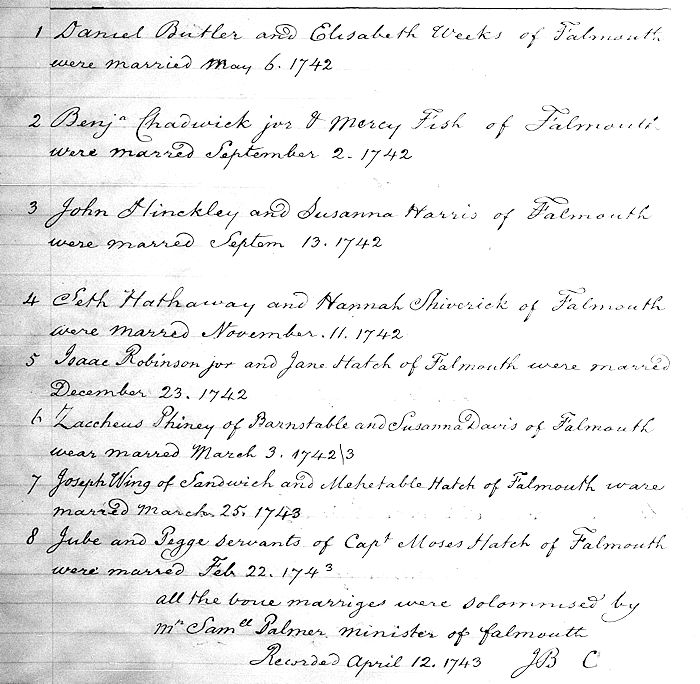 1 Daniel Butler and Elisabeth Weeks of Falmouth
were married May 6. 1742
2 Benja Chadwick jor & Mercy Fish of Falmouth
were marred September 2. 1742
3 John Hinckley and Susanna Harris of Falmouth
were marred Septem 13. 1742
4 Seth Hathaway and Hannah Shiverick of Falmouth
were marred November. 11. 1742
5 Isaac Robinson jor and Jane Hatch of Falmouth were marred
December 23. 1742
6 Zaccheus Phiney of Barnstable and Susanna Davis of Falmouth
wear marred March 3. 1742\3
7 Joseph Wing of Sandwich and Mehetable Hatch of Falmouth ware
marred March. 25. 1743
8 Jube and Pegge servants of Capt Moses Hatch of Falmouth
were marred Feb 22. 1743
all the boue marriges were solomnised by
Mr Samll Palmer minister of falmouth
Recorded April 12. 1743 JB C